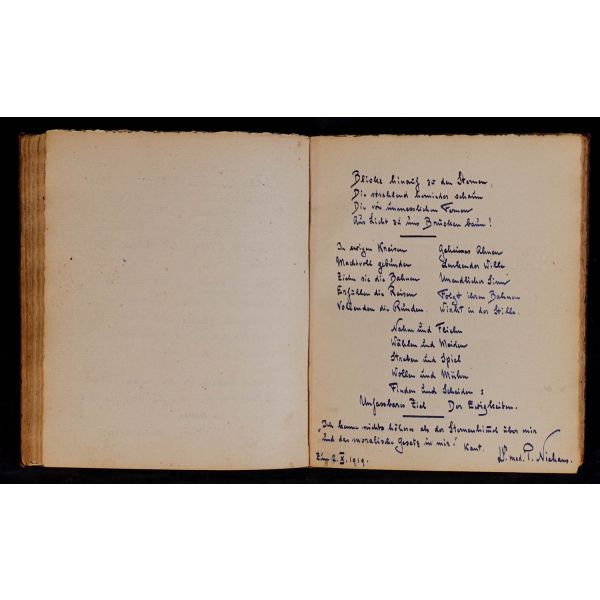 Blicke hinauf zu den Sternen,
Die strahlend hernieder schaun
Die von unermesslichen Fernen
Aus Licht zu uns Brücken baun!
In ewigen Kreisen
Machtvoll gebunden
Ziehn sie die Bahnen
Erfüllen die Reisen
Vollenden die Runden.
Geheimes Ahnen
Lenkender Wille
Unendlicher Sinn
Folgt ihren Bahnen
Wirkt in der Stille.
Nahn und Fliehn
Wählen und Meiden
Streben und Spiel
Wollen und Mühn
Finden und Scheiden:
Unfassbares Ziel Der Ewigkeiten.
„Ich kenne nichts höheres als der Sternenhimmel über mir
und das moralische Gesetz in mir." Kant.
2.X.1919.
Dr. med. P. Niehans.